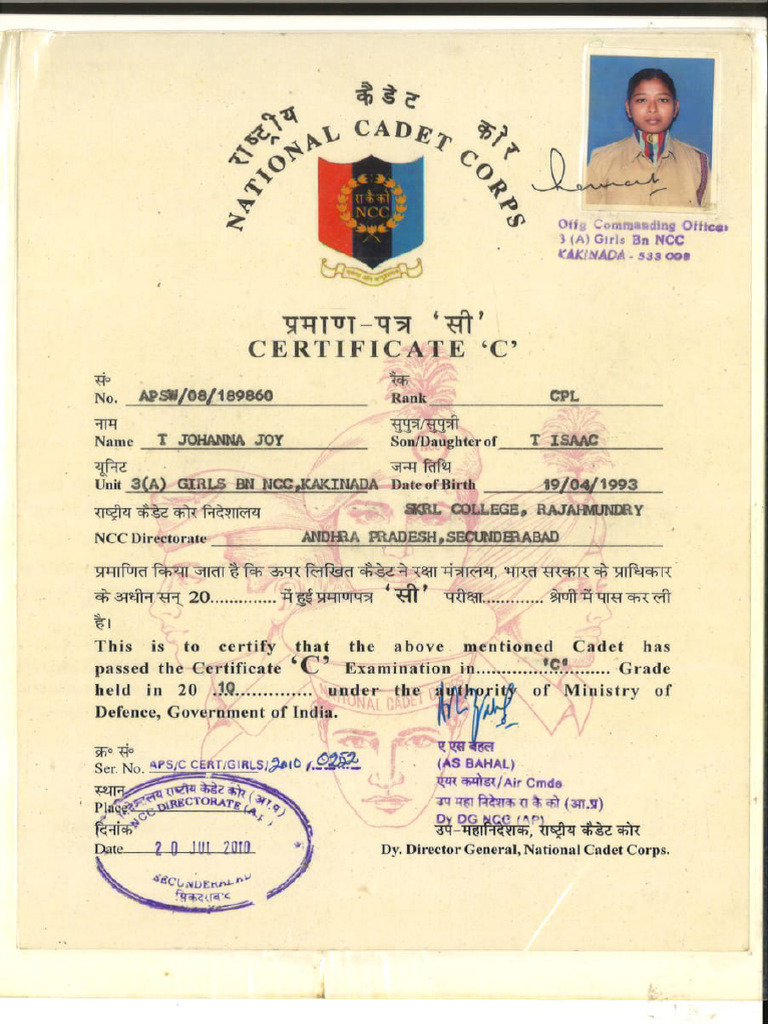 राष्ट्रीय कैडेट कोर
NATIONAL CADET CORPS
रा कै को
NCC
Offg Commanding Officer
3 (A) Girls Bn NCC
KAKINADA - 533 008
प्रमाण-पत्र 'सी'
CERTIFICATE 'C'
सं॰ रैंक
No. APSW/08/189860 Rank CPL
नाम सुपुत्र/सुपुत्री
Name T JOHANNA JOY Son/Daughter of T ISAAC
यूनिट जन्म तिथि
Unit 3(A) GIRLS BN NCC,KAKINADA Date of Birth 19/04/1993
राष्ट्रीय कैडेट कोर निदेशालय SKRL COLLEGE, RAJAHMUNDRY
NCC Directorate ANDHRA PRADESH,SECUNDERABAD
प्रमाणित किया जाता है कि ऊपर लिखित कैडेट ने रक्षा मंत्रालय, भारत सरकार के प्राधिकार
के अधीन सन् 20............. में हुई प्रमाणपत्र 'सी' परीक्षा............. श्रेणी में पास कर ली
है।
This is to certify that the above mentioned Cadet has
passed the Certificate 'C' Examination in................'C'.......... Grade
held in 20 10.............. under the authority of Ministry of
Defence, Government of India.
NATIONAL CADET CORPS
क्र॰ सं॰ ए एस बहल
(AS BAHAL)
Ser. No. APS/C CERT/GIRLS/2010/0252
एयर कमोडर/Air Cmde
स्थान उप महा निदेशक रा कै को (आ.प्र)
Place Dy DG NCC (AP)
दिनांक उप-महानिदेशक, राष्ट्रीय कैडेट कोर
Date 20 JUL 2010 Dy. Director General, National Cadet Corps.
निदेशालय राष्ट्रीय कैडेट कोर (आ.प्र)
NCC DIRECTORATE (A.P)
SECUNDERABAD
सिकंदराबाद